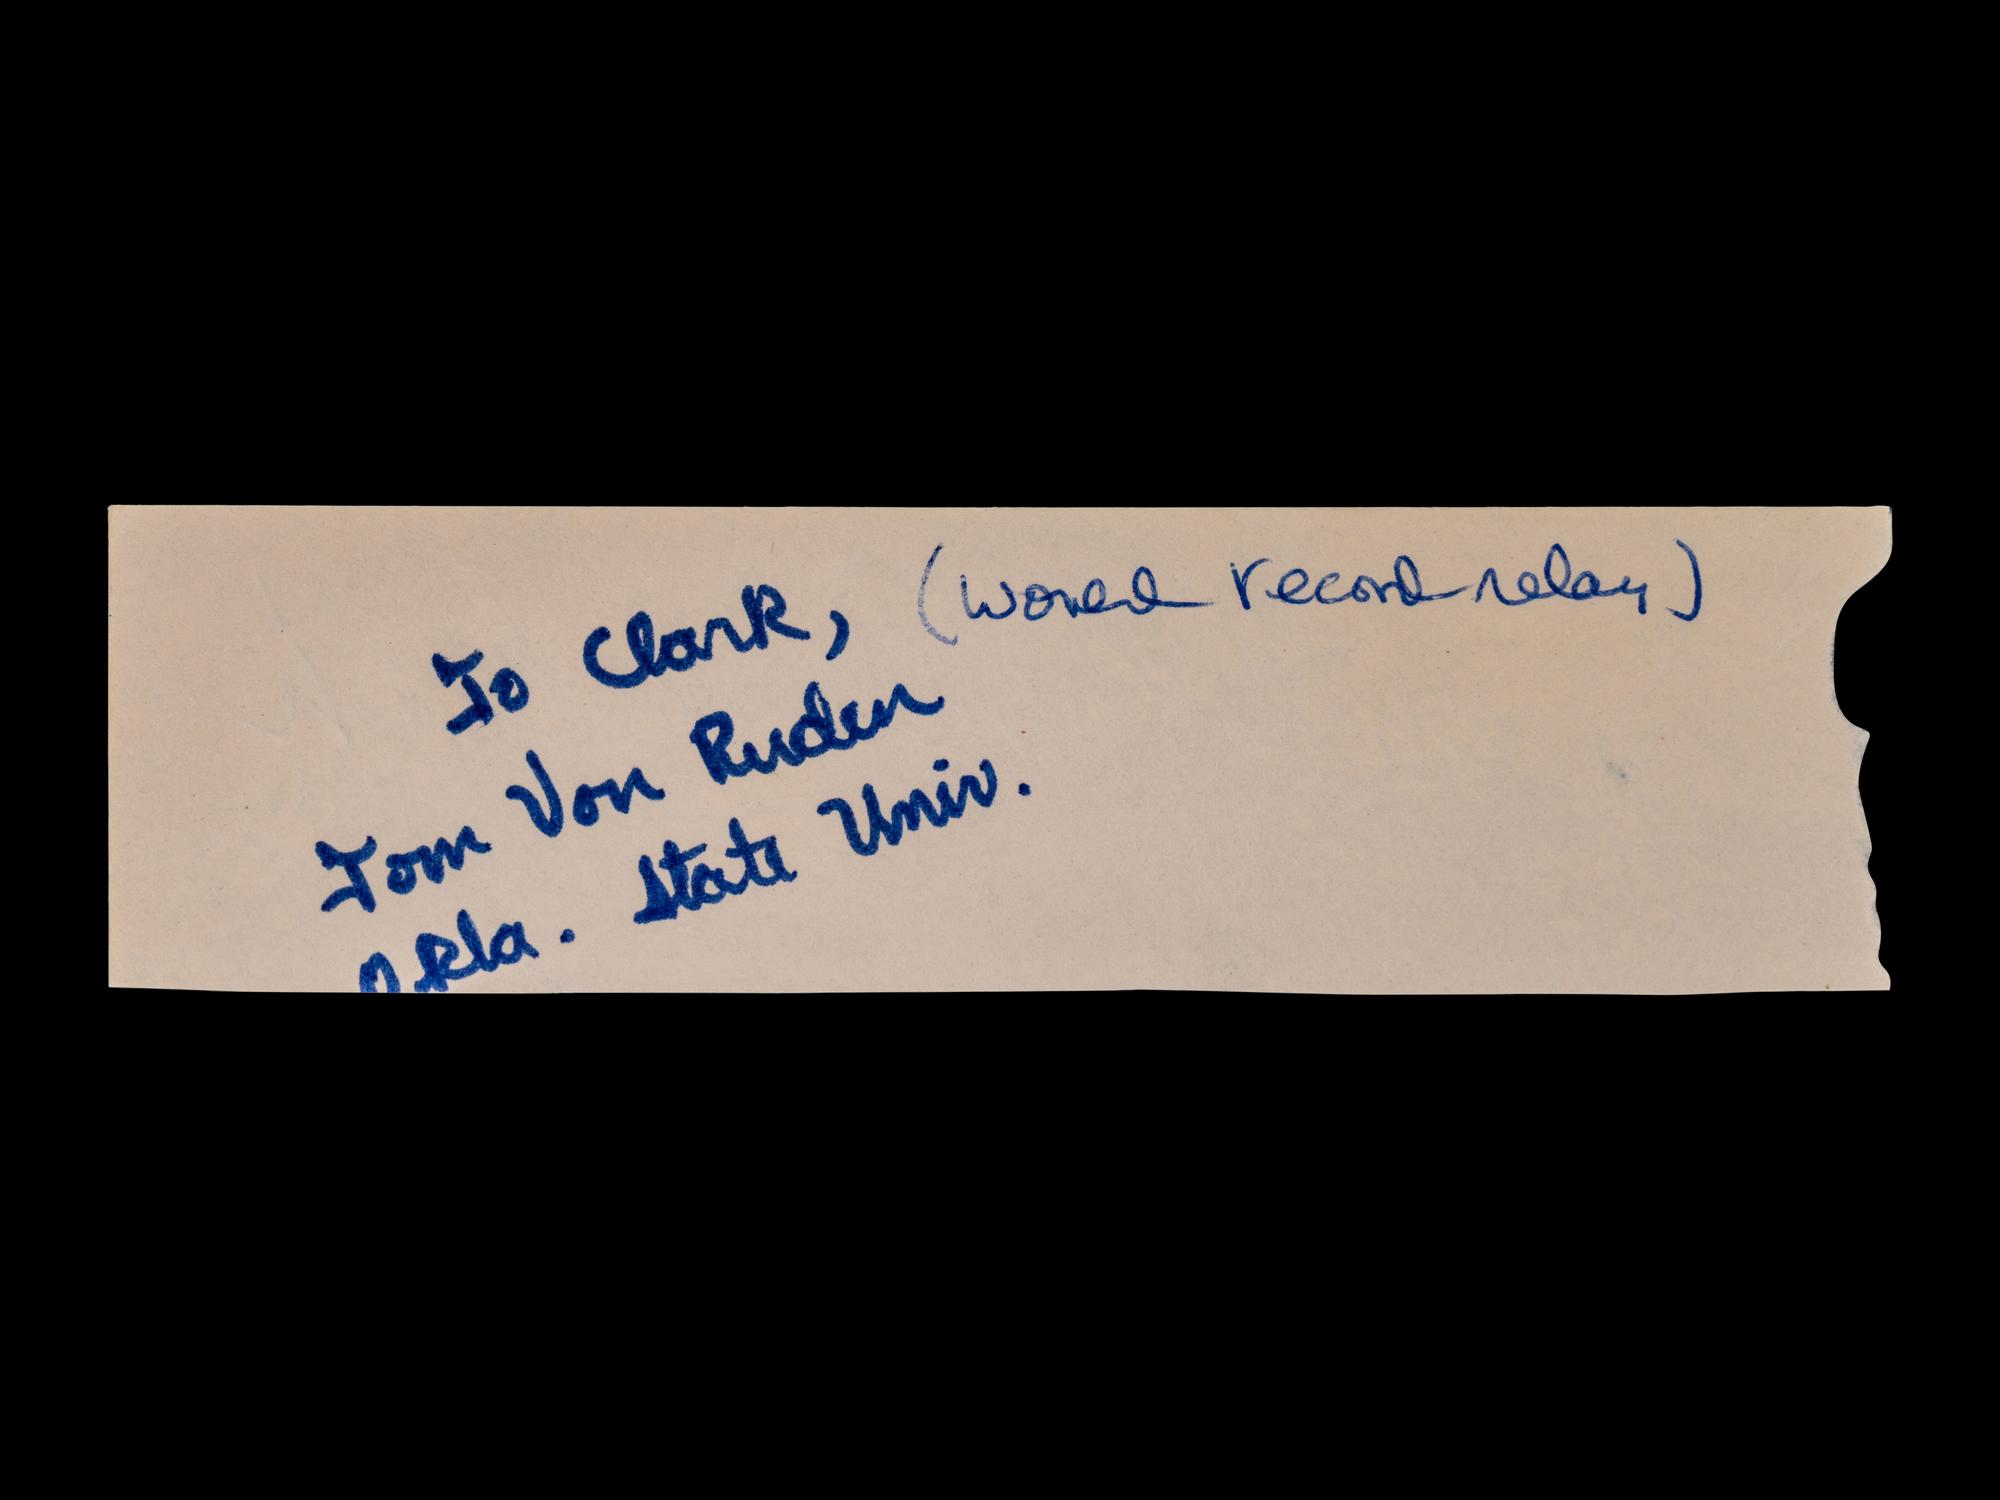 To Clark, (World record relay)
Tom Von Ruden
Okla. State Univ.